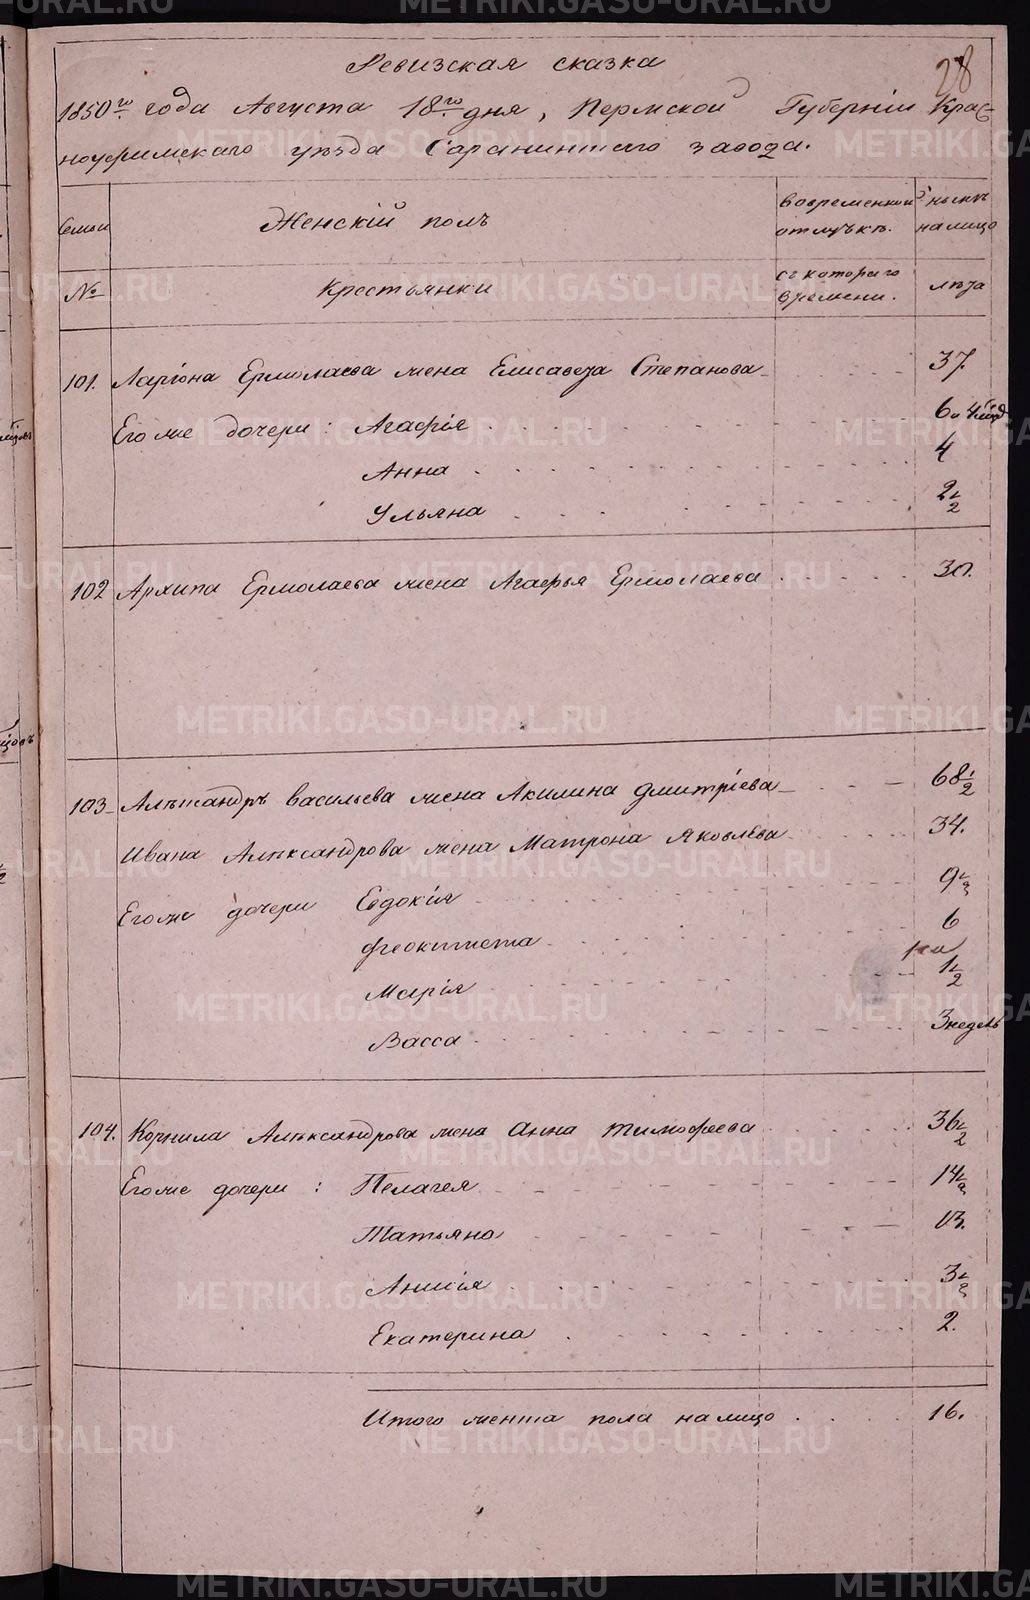 28
Ревизская сказка
1850го года Августа 18го дня, Пермской Губернiи Крас-
ноуфимскаго уѣзда Саранинскаго завода.
Семьи
Женскiй полъ
во временной отлучкѣ.
нынѣ на лицо
№
Крестьянки
съ котораго времени.
лѣта
101. Ларiона Ермолаева жена Елисавета Степанова 37.
Его же дочери: Агафiя 6 и 4
Анна 4
Ульяна 2 1/2
102 Архипа Ермолаева жена Агафья Ермолаева 30.
103 Алѣксандръ Васильева жена Акилина Дмитрiева 68 1/2
Ивана Алѣксандрова жена Матрона Яковлева 34.
Его же дочери Евдокiя 9 1/2
Феоктиста 6
Марiя 1 1/2
Васса 3 недель
104. Корнила Алѣксандрова жена Анна Тимофеева 36 1/2
Его же дочери: Пелагея 14 1/2
Татьяна 13.
Анисiя 3 1/2
Екатерина 2.
Итого женска пола на лицо 16.
METRIKI.GASO-URAL.RU